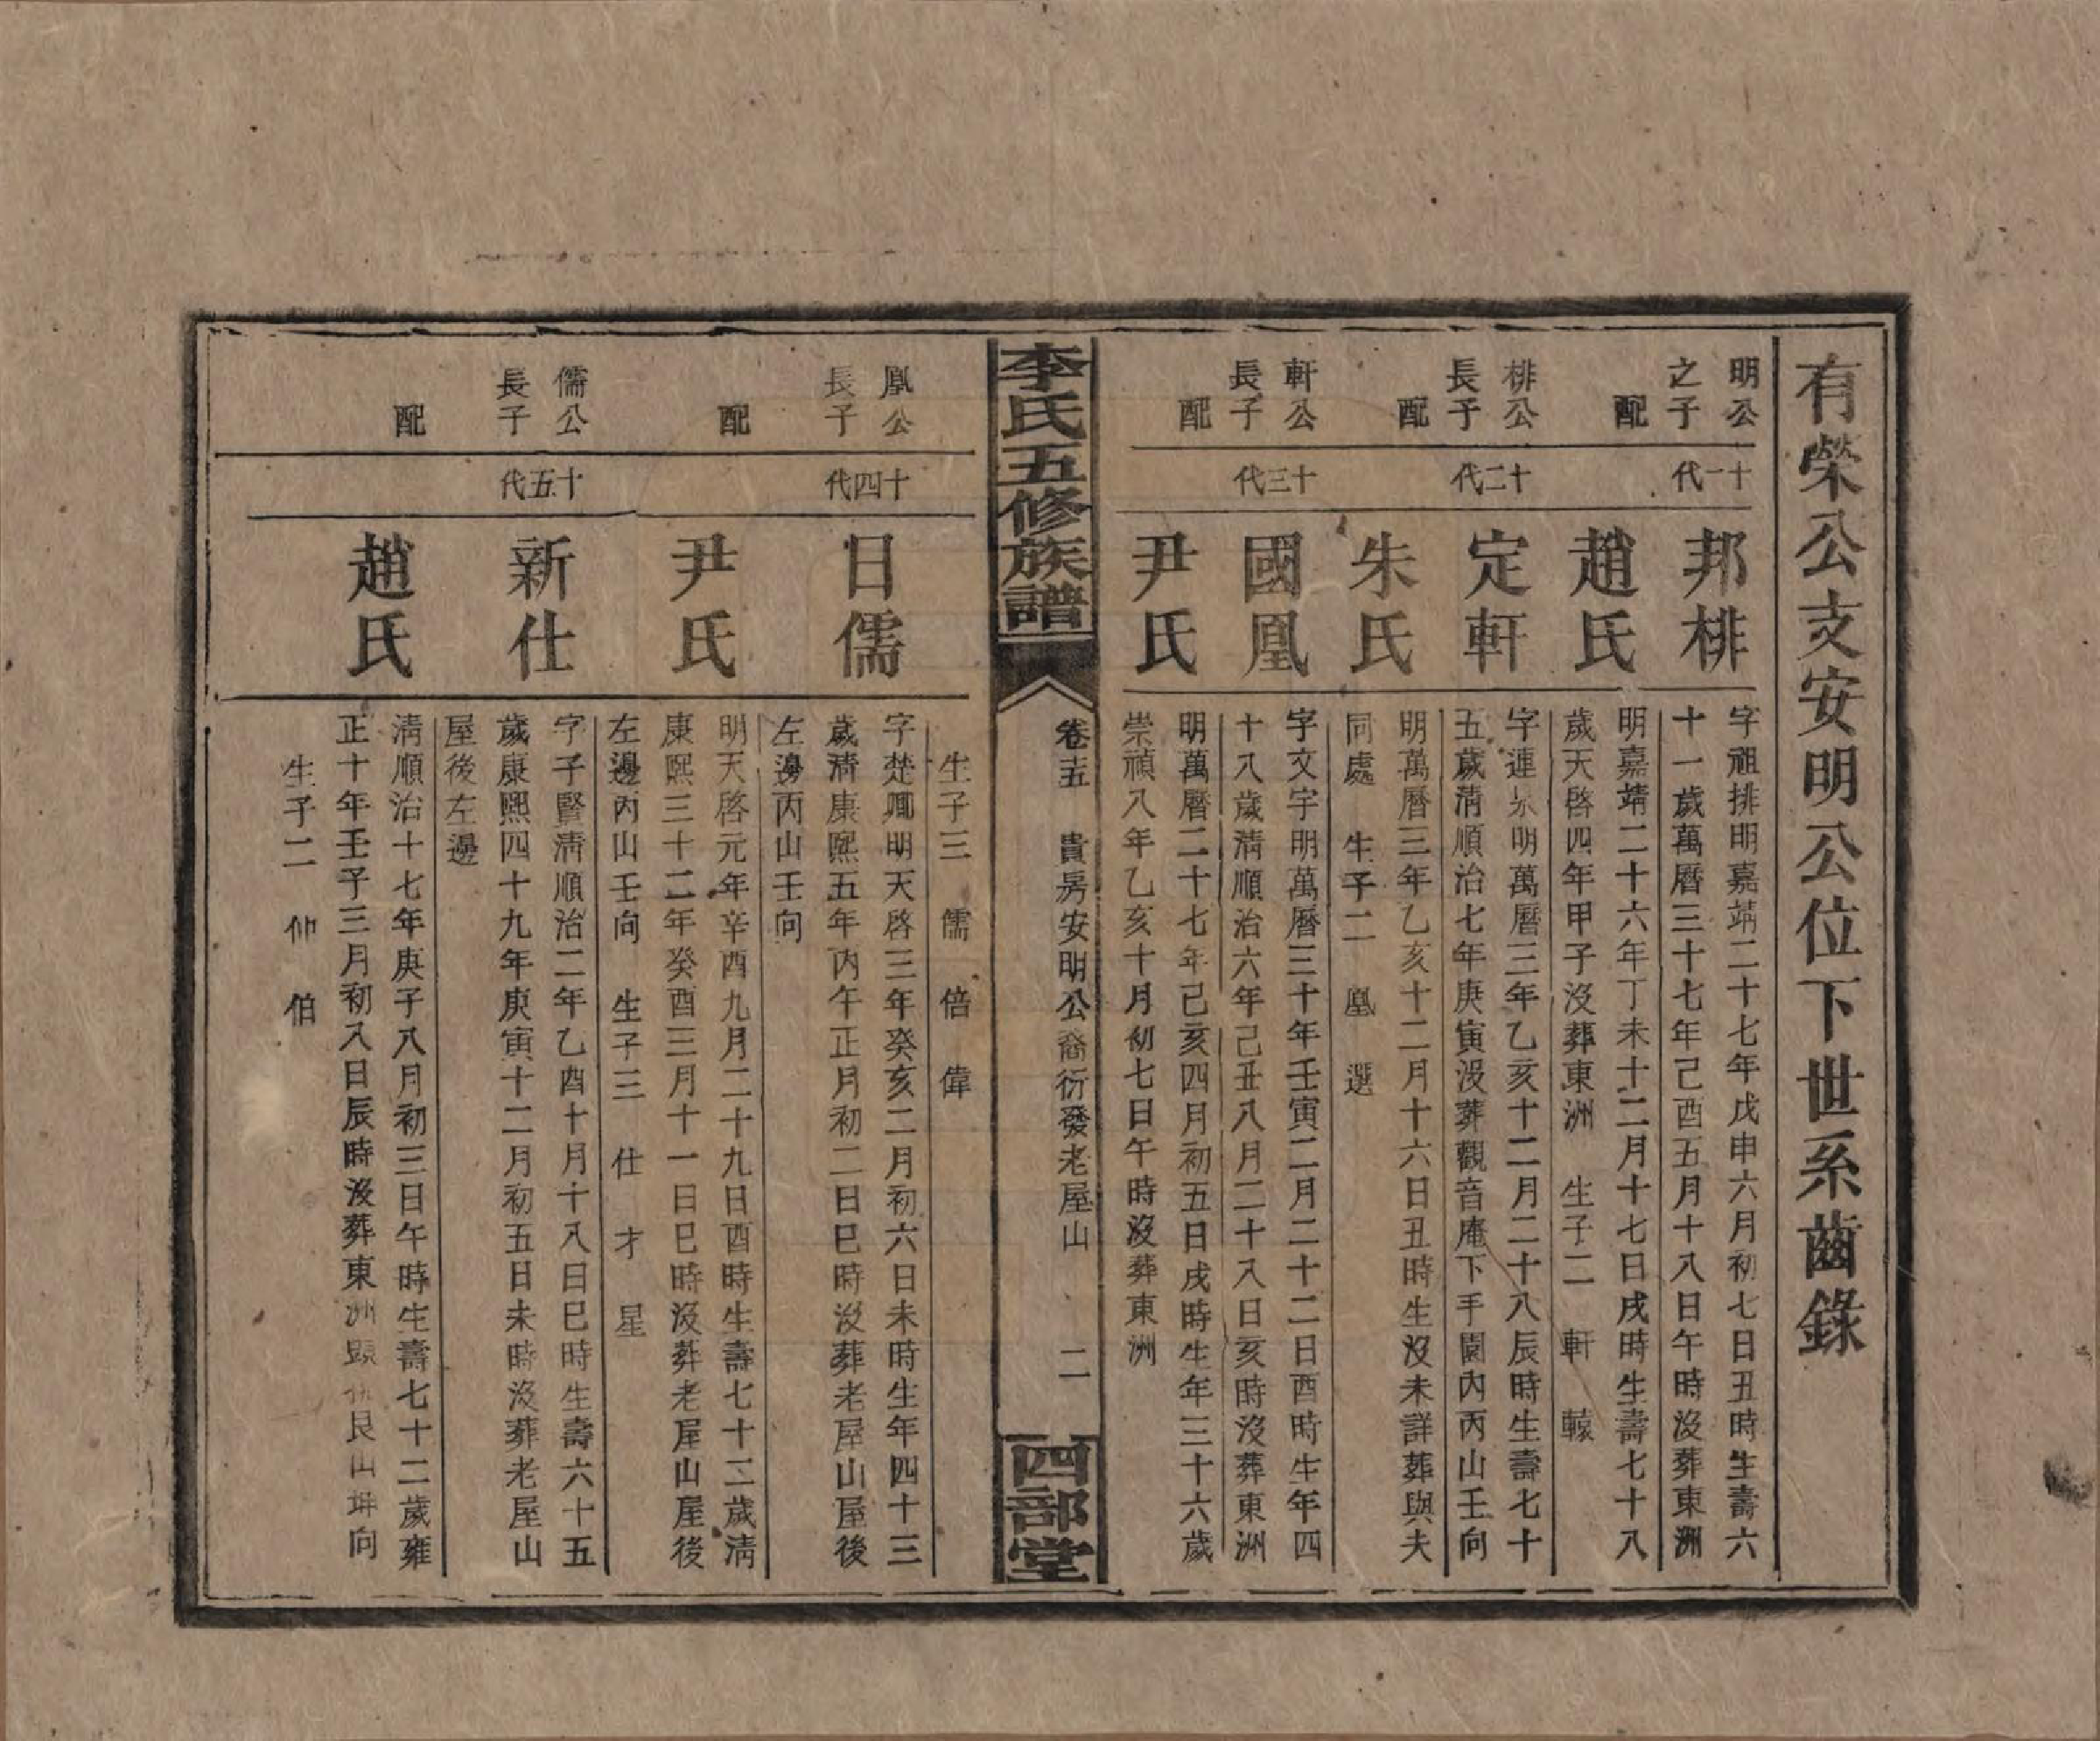 有榮公支安明公位下世系齒錄
明公之子
十一代
邦桃
字祖排明嘉靖二十七年戊申六月初七日丑時生壽六
十一歲萬曆三十七年己酉五月十八日午時沒葬東洲
配
趙氏
明嘉靖二十六年丁未十二月十七日戌時生壽七十八
歲天啓四年甲子沒葬東洲 生子二 軒 轅
桃公長子
十二代
定軒
字連 明萬曆三年乙亥十二月二十八辰時生壽七十
五歲清順治七年庚寅沒葬觀音庵下手園內丙山壬向
配
朱氏
明萬曆三年乙亥十二月十六日丑時生沒未詳葬與夫
同處 生子二 凰 選
軒公長子
十三代
國凰
字文宇明萬曆三十年壬寅二月二十二日酉時生年四
十八歲清順治六年己丑八月二十八日亥時沒葬東洲
配
尹氏
明萬曆二十七年己亥四月初五日戌時生年三十六歲
崇禎八年乙亥十月初七日午時沒葬東洲
李氏五修族譜
卷十五 貴房安明公裔衍發老屋山 二
四部堂
生子三 儒 倍 偉
凰公長子
十四代
日儒
字楚卿明天啓三年癸亥二月初六日未時生年四十三
歲清康熙五年丙午正月初二日巳時沒葬老屋山屋後
左邊丙山壬向
配
尹氏
明天啓元年辛酉九月二十九日酉時生壽七十二歲清
康熙三十二年癸酉三月十一日巳時沒葬老屋山屋後
左邊丙山壬向 生子三 仕 才 星
儒公長子
十五代
新仕
字子賢清順治二年乙酉十月十八日巳時生壽六十五
歲康熙四十九年庚寅十二月初五日未時沒葬老屋山
屋後左邊
配
趙氏
清順治十七年庚子八月初三日午時生壽七十二歲雍
正十年壬子三月初八日辰時沒葬東洲 艮山坤向
生子二 仲 伯